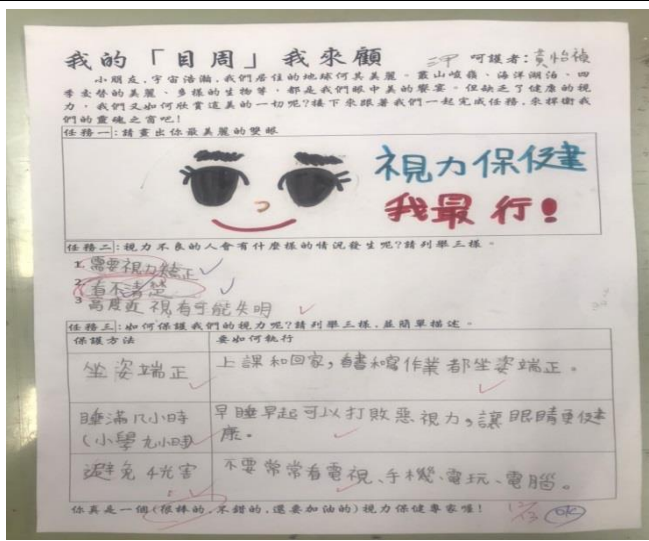 我的「目周」我來顧 呵護者:黃怡禎
小朋友,宇宙浩瀚,我們居住的地球何其美麗。叢山峻嶺、海洋湖泊、四
季更替的美麗、多樣的生物等,都是我們眼中美的饗宴。但缺乏了健康的視
力,我們又如何欣賞這美的一切呢?接下來跟著我們一起完成任務,來捍衛我
們的靈魂之窗吧!
任務一:請畫出你最美麗的雙眼
視力保健
我最行!
任務二:視力不良的人會有什麼樣的情況發生呢?請列舉三樣。
1.需要視力矯正
2.看不清楚
3高度近視有可能失明
任務三:如何保護我們的視力呢?請列舉三樣,並簡單描述。
保護方法 要如何執行
坐姿端正 上課和回家,看書和寫作業都坐姿端正。
睡滿八小時 早睡早起可以打敗惡視力,讓眼睛更健
(小學九小時) 康。
避免4光害 不要常常看電視、手機、電玩、電腦。
你真是一個(很棒的,不錯的,還要加油的)視力保健專家喔!